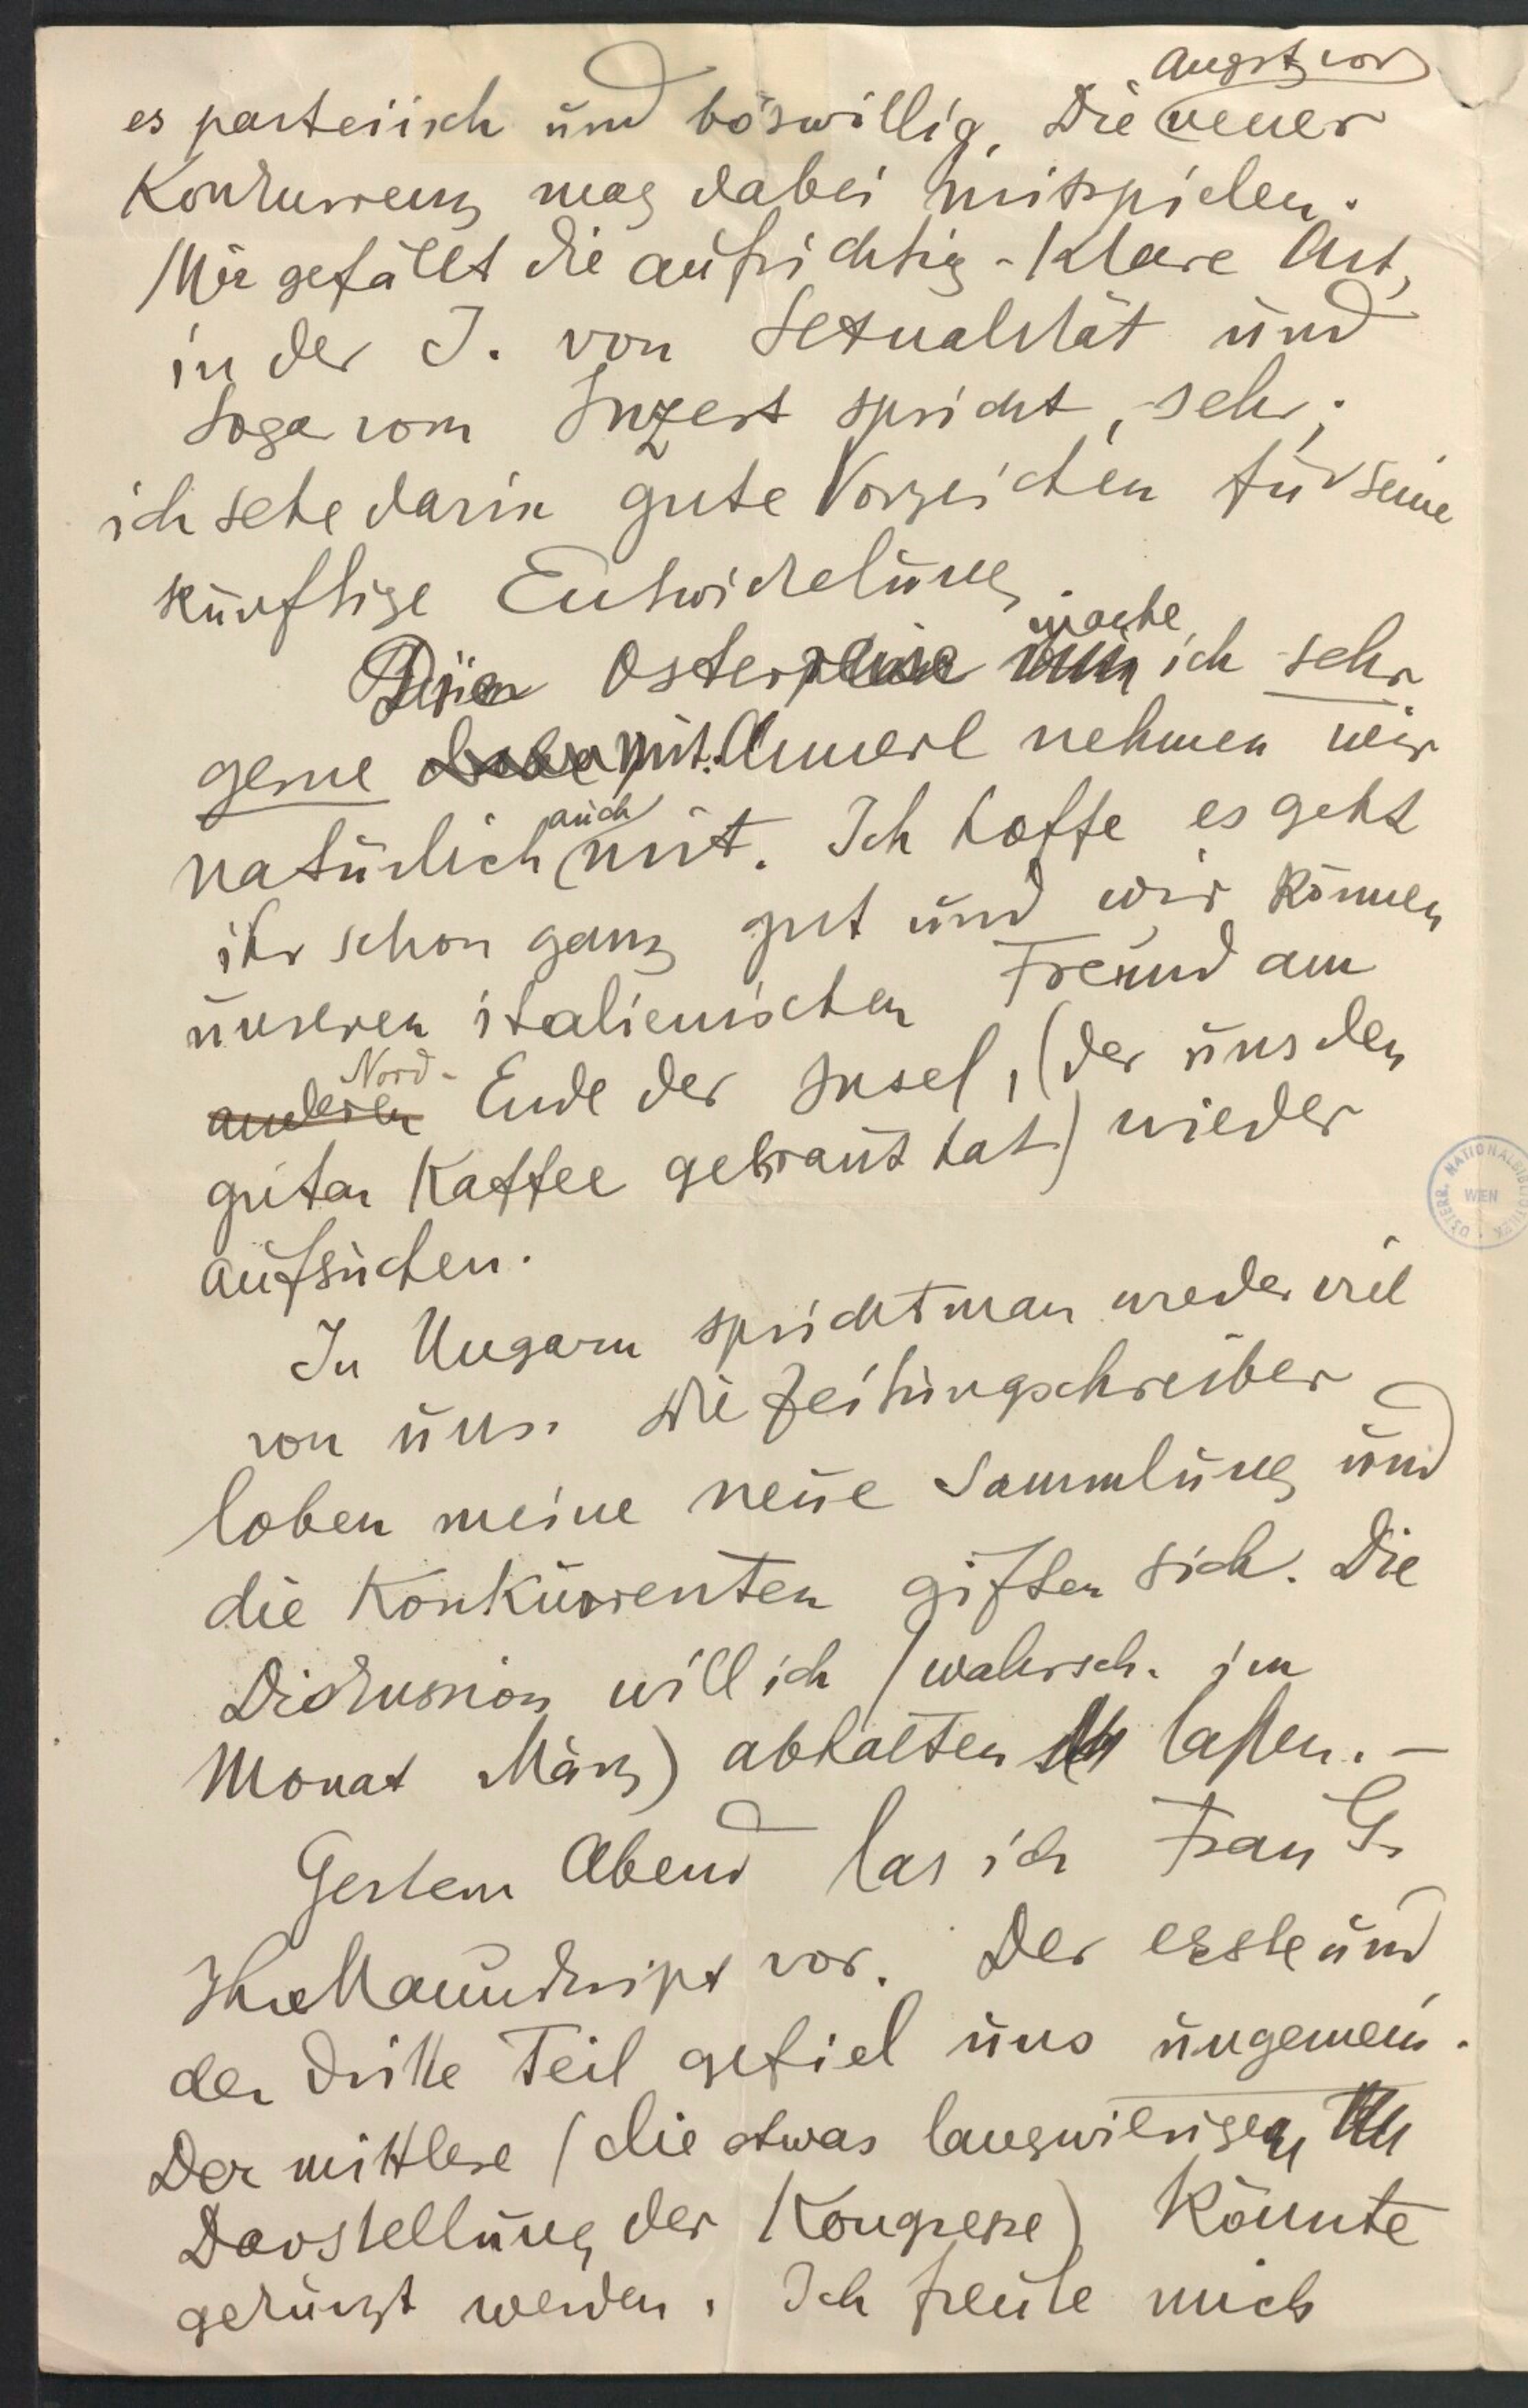 es parteiisch und böswillig. Die Angst vor neuer
Konkurrenz mag dabei mitspielen.
Mir gefällt die aufrichtig-klare Art,
in der J. von Sexualität und
sogar vom Inzest spricht, sehr;
ich sehe darin gute Vorzeichen für seine
künftige Entwickelung
Die Osterreise mache ich sehr
gerne mit. Annerl nehmen wir
natürlich auch mit. Ich hoffe es geht
ihr schon ganz gut und wir können
unseren italienischen Freund am
anderen Nord-Ende der Insel, (der uns den
guten Kaffee gebraut hat) wieder
aufsuchen.
In Ungarn spricht man wieder viel
von uns. Die Zeitungschreiber
loben meine neue Sammlung und
die Konkurrenten giften sich. Die
Diskussion will ich (wahrsch. im
Monat März) abhalten laßen. –
Gestern Abend las ich Frau G.
Ihr Manuskript vor. Der erste und
der dritte Teil gefiel uns ungemein.
Der mittlere (die etwas langwierige
Darstellung der Kongresse) könnte
gekürzt werden. Ich freute mich
ÖSTERR. NATIONALBIBLIOTHEK
WIEN